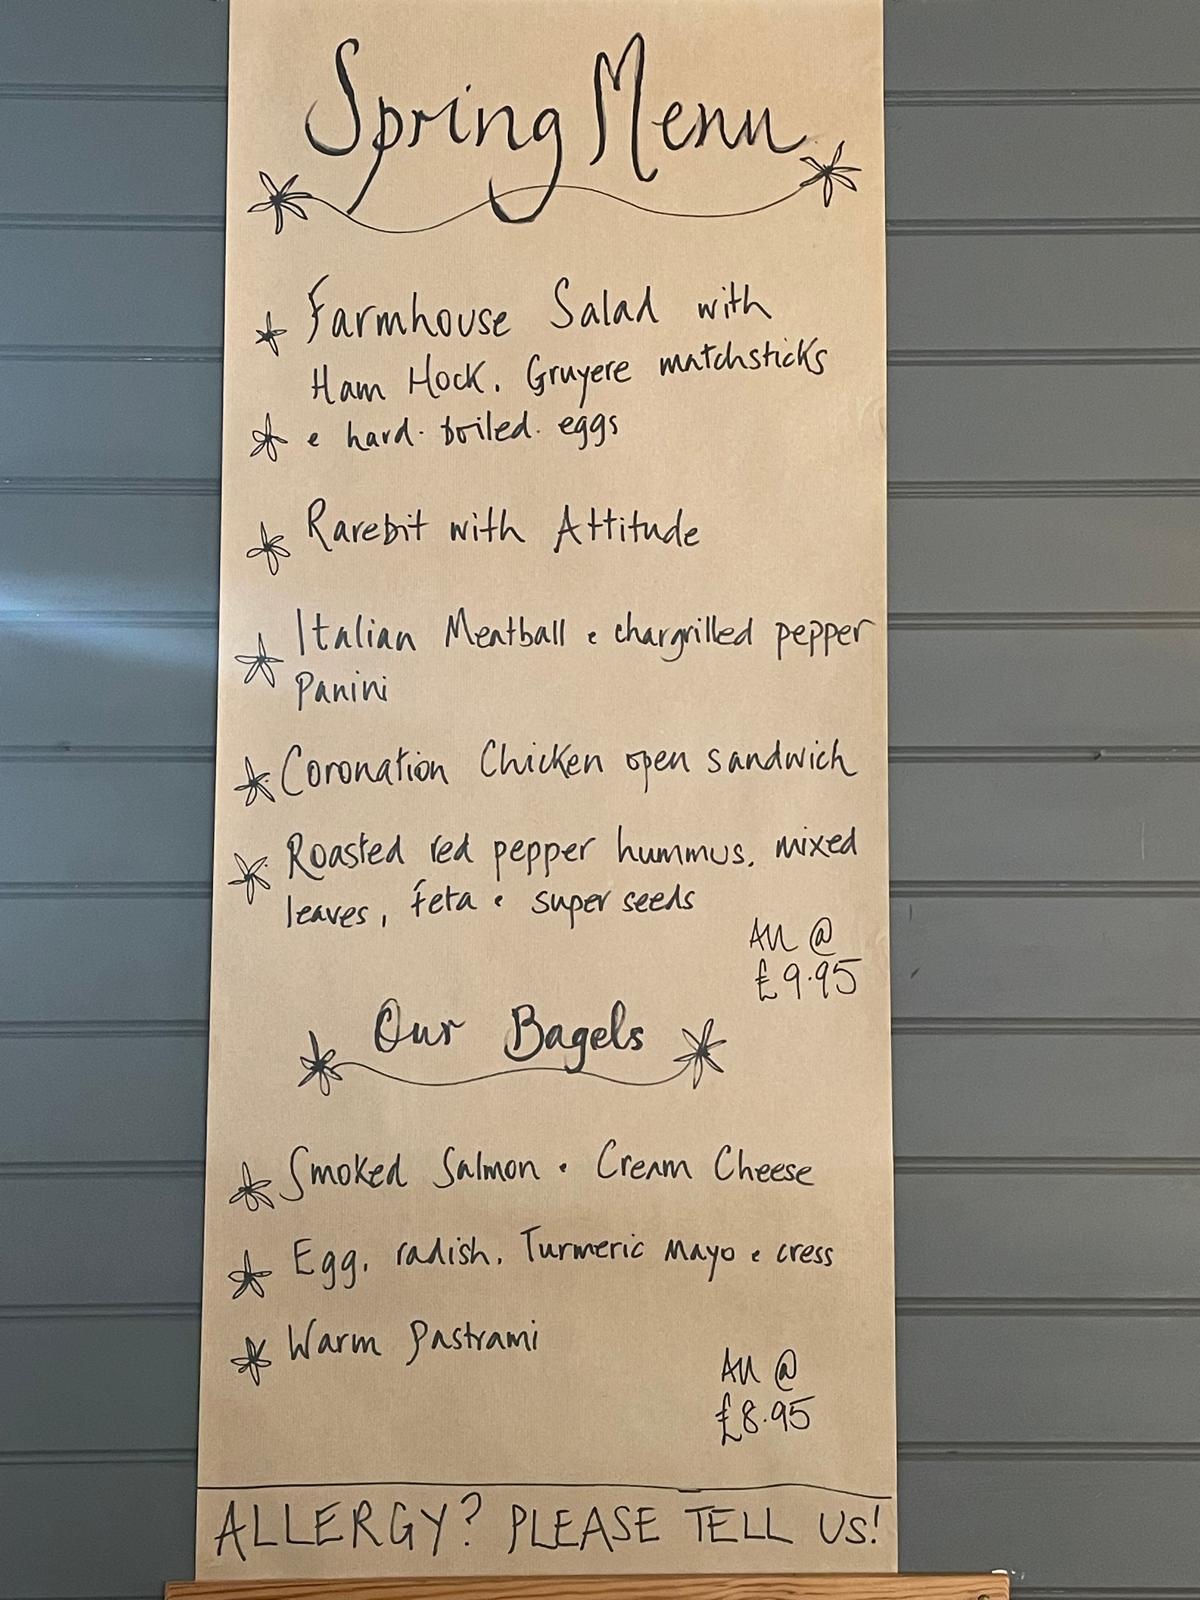 Spring Menu
Farmhouse Salad with
Ham Hock, Gruyere matchsticks
& hard-boiled eggs
Rarebit with Attitude
Italian Meatball & chargrilled pepper
Panini
Coronation Chicken open sandwich
Roasted red pepper hummus, mixed
leaves, feta & super seeds
All @
£9.95
Our Bagels
Smoked Salmon & Cream Cheese
Egg, radish, Turmeric Mayo & cress
Warm Pastrami
All @
£8.95
ALLERGY? PLEASE TELL US!